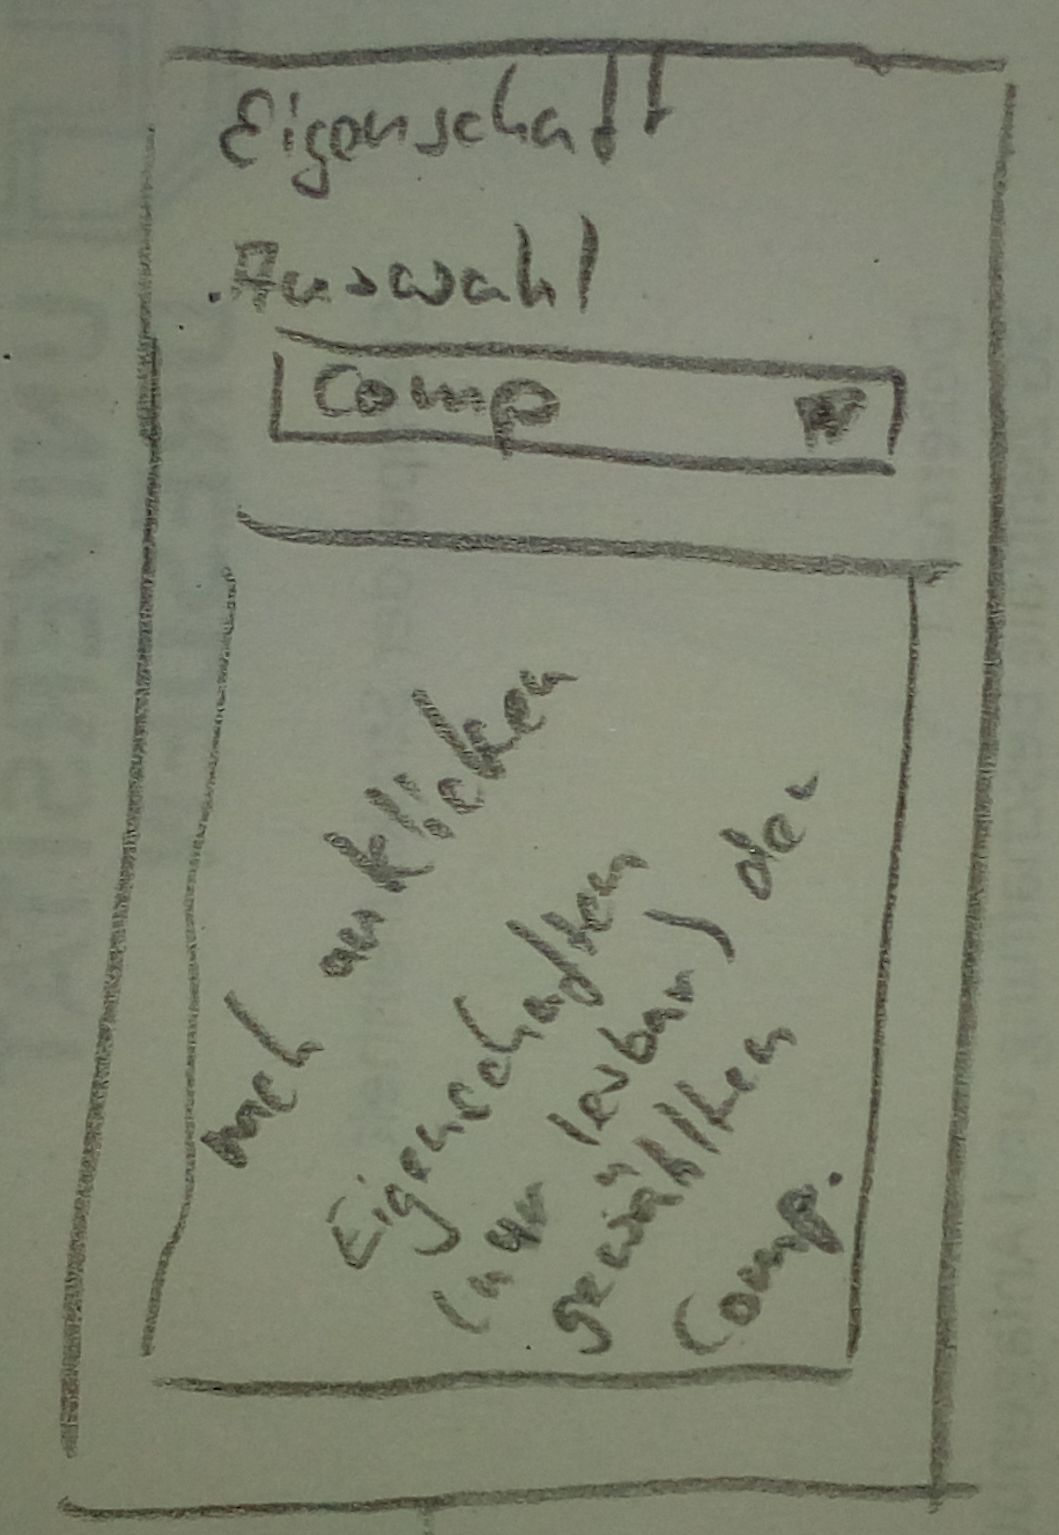 Eigenschaft
Auswahl
Comp
nach anklicken
Eigenschaften
der
gewählten
Comp.